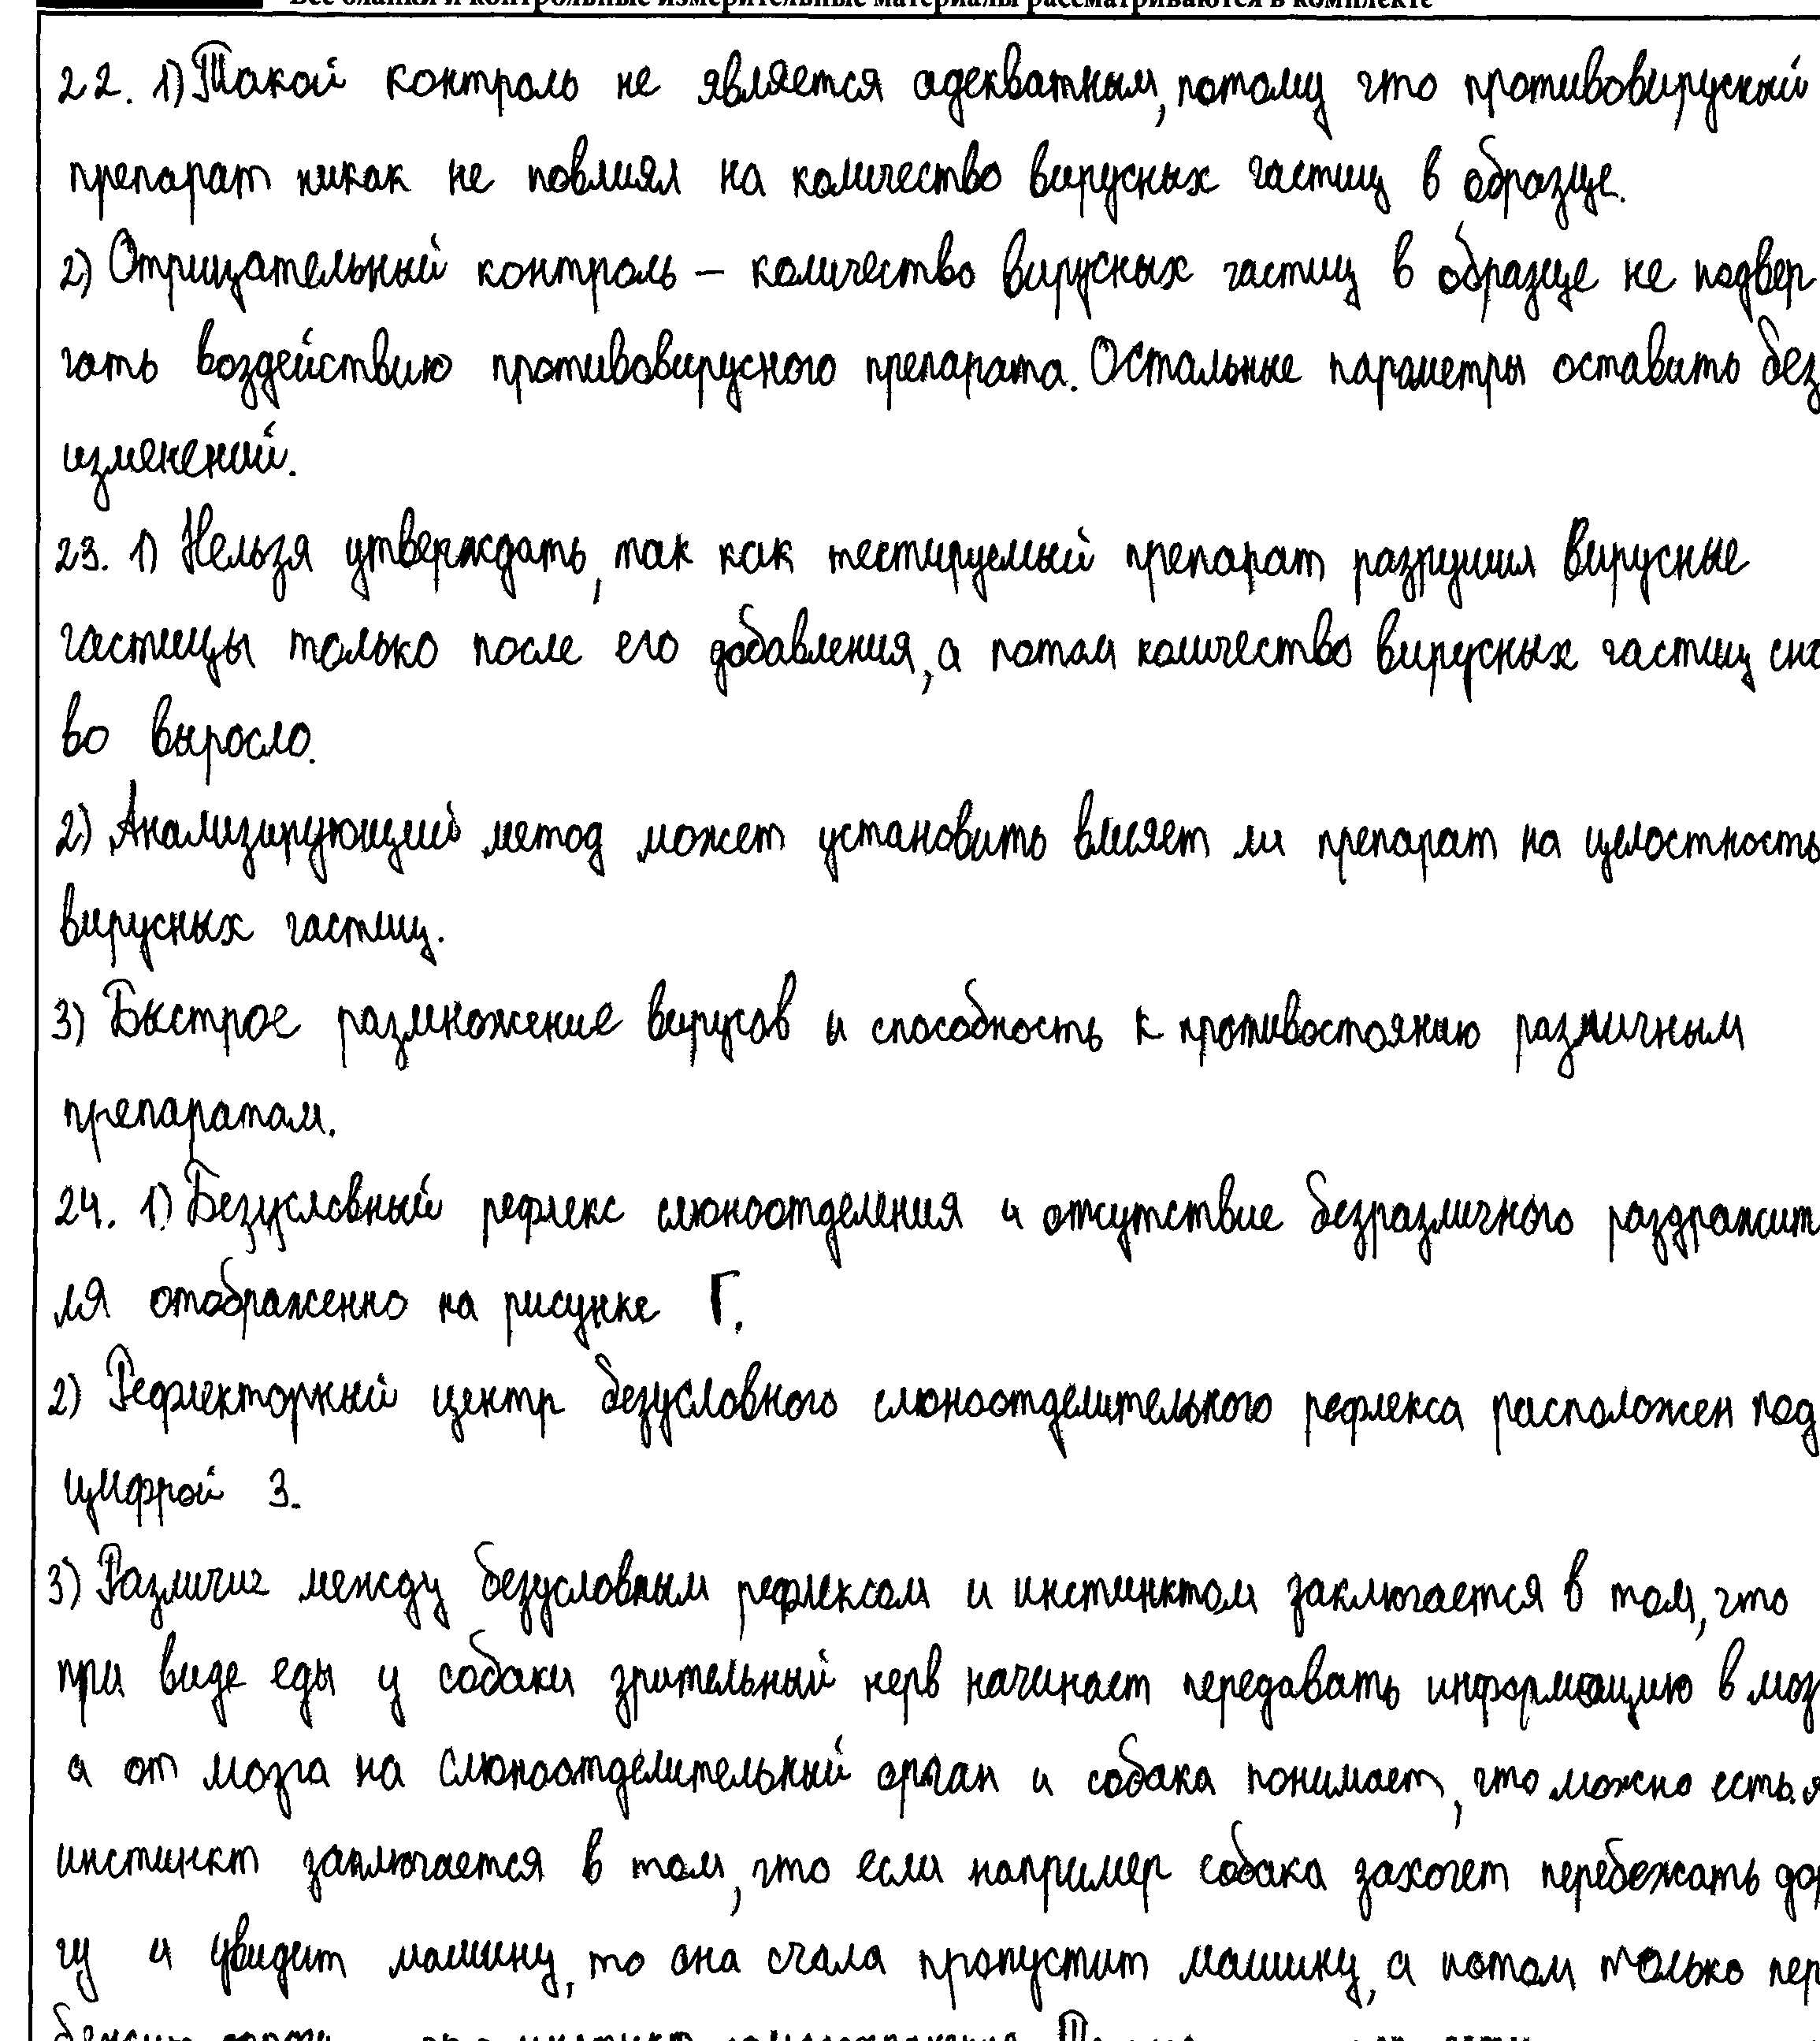 Все бланки и контрольные измерительные материалы рассматриваются в комплекте
22. 1) Такой контроль не является адекватным, потому что противовирусный
препарат никак не повлиял на количество вирусных частиц в образце.
2) Отрицательный контроль – количество вирусных частиц в образце не подвер
гать воздействию противовирусного препарата. Остальные параметры оставить без
изменений.
23. 1) Нельзя утверждать, так как тестируемый препарат разрушил вирусные
частицы только после его добавления, а потом количество вирусных частиц сно
во выросло.
2) Анализирующий метод может установить влияет ли препарат на целостность
вирусных частиц.
3) Быстрое размножение вирусов и способность к противостоянию различным
препаратам.
24. 1) Безусловный рефлекс слюноотделения и отсутствие безразличного раздражит
ля отображенно на рисунке Г.
2) Рефлекторный центр безусловного слюноотделительного рефлекса расположен под
цифрой 3.
3) Различие между безусловным рефлексом и инстинктом заключается в том, что
при виде еды у собаки зрительный нерв начинает передавать информацию в моз
а от мозга на слюноотделительный орган и собака понимает, что можно есть. я
инстинкт заключается в том, что если например собака захочет перебежать дор
гу и увидит машину, то она счала пропустит машину, а потом только пер